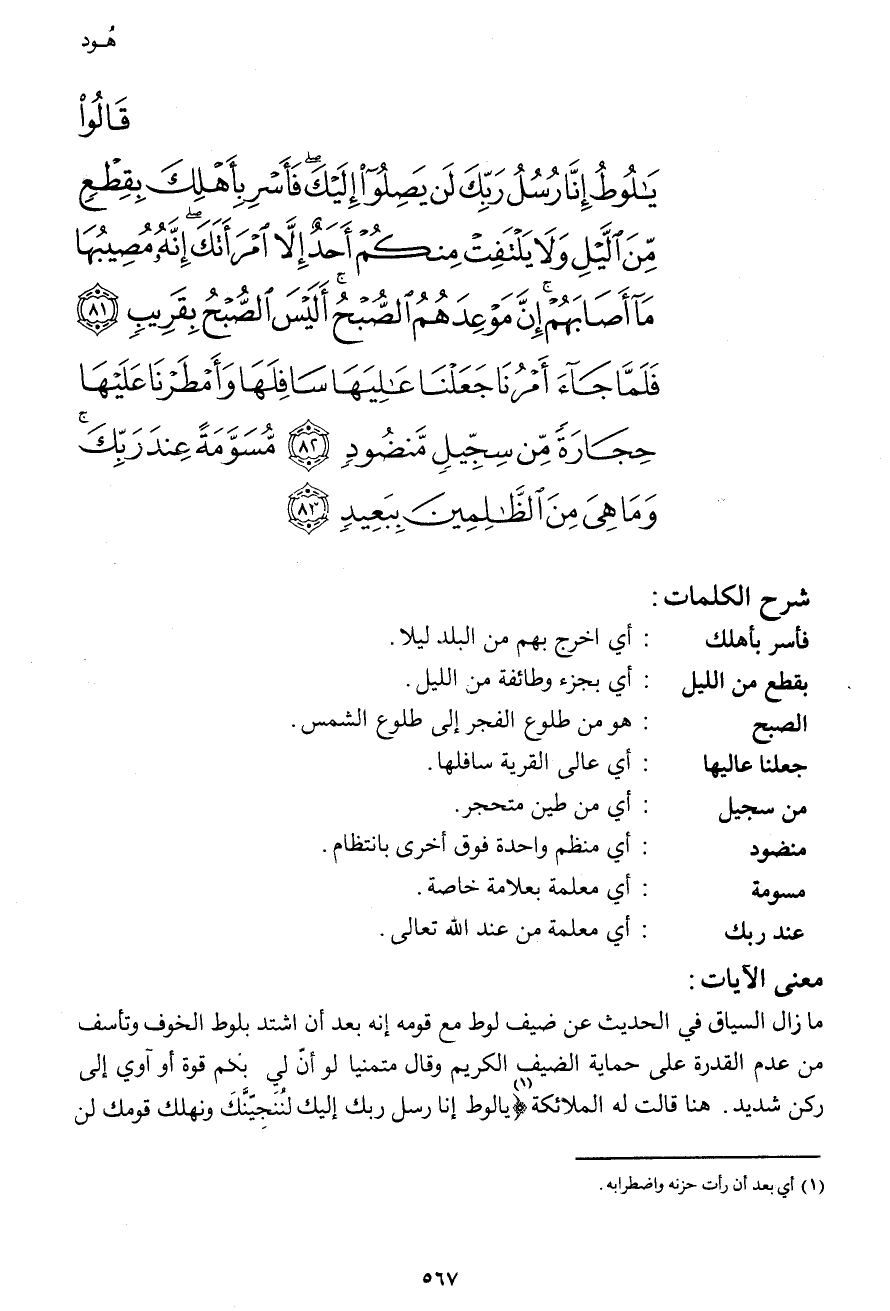 هُـود
قَالُوا۟
يَـٰلُوطُ إِنَّا رُسُلُ رَبِّكَ لَن يَصِلُوٓا۟ إِلَيْكَ ۖ فَأَسْرِ بِأَهْلِكَ بِقِطْعٍ
مِّنَ ٱلَّيْلِ وَلَا يَلْتَفِتْ مِنكُمْ أَحَدٌ إِلَّا ٱمْرَأَتَكَ ۖ إِنَّهُۥ مُصِيبُهَا
مَآ أَصَابَهُمْ ۚ إِنَّ مَوْعِدَهُمُ ٱلصُّبْحُ ۚ أَلَيْسَ ٱلصُّبْحُ بِقَرِيبٍ ٨١
فَلَمَّا جَآءَ أَمْرُنَا جَعَلْنَا عَـٰلِيَهَا سَافِلَهَا وَأَمْطَرْنَا عَلَيْهَا
حِجَارَةً مِّن سِجِّيلٍ مَّنضُودٍ ٨٢ مُّسَوَّمَةً عِندَ رَبِّكَ ۚ
وَمَا هِىَ مِنَ ٱلظَّـٰلِمِينَ بِبَعِيدٍ ٨٣
شرح الكلمات :
فأسر بأهلك : أي اخرج بهم من البلد ليلا .
بقطع من الليل : أي بجزء وطائفة من الليل .
الصبح : هو من طلوع الفجر إلى طلوع الشمس .
جعلنا عاليها : أي عالى القرية سافلها .
من سجيل : أي من طين متحجر .
منضود : أي منظم واحدة فوق أخرى بانتظام .
مسومة : أي معلمة بعلامة خاصة .
عند ربك : أي معلمة من عند الله تعالى .
معنى الآيات :
ما زال السياق في الحديث عن ضيف لوط مع قومه إنه بعد أن اشتد بلوط الخوف وتأسف
من عدم القدرة على حماية الضيف الكريم وقال متمنيا لو أنّ لي بكم قوة أو آوي إلى
ركن شديد . هنا قالت له الملائكة (١) ﴿يالوط إنا رسل ربك إليك لنُنَجيّنَّكَ ونهلك قومك لن
(١) أي بعد أن رأت حزنه واضطرابه .
٥٦٧